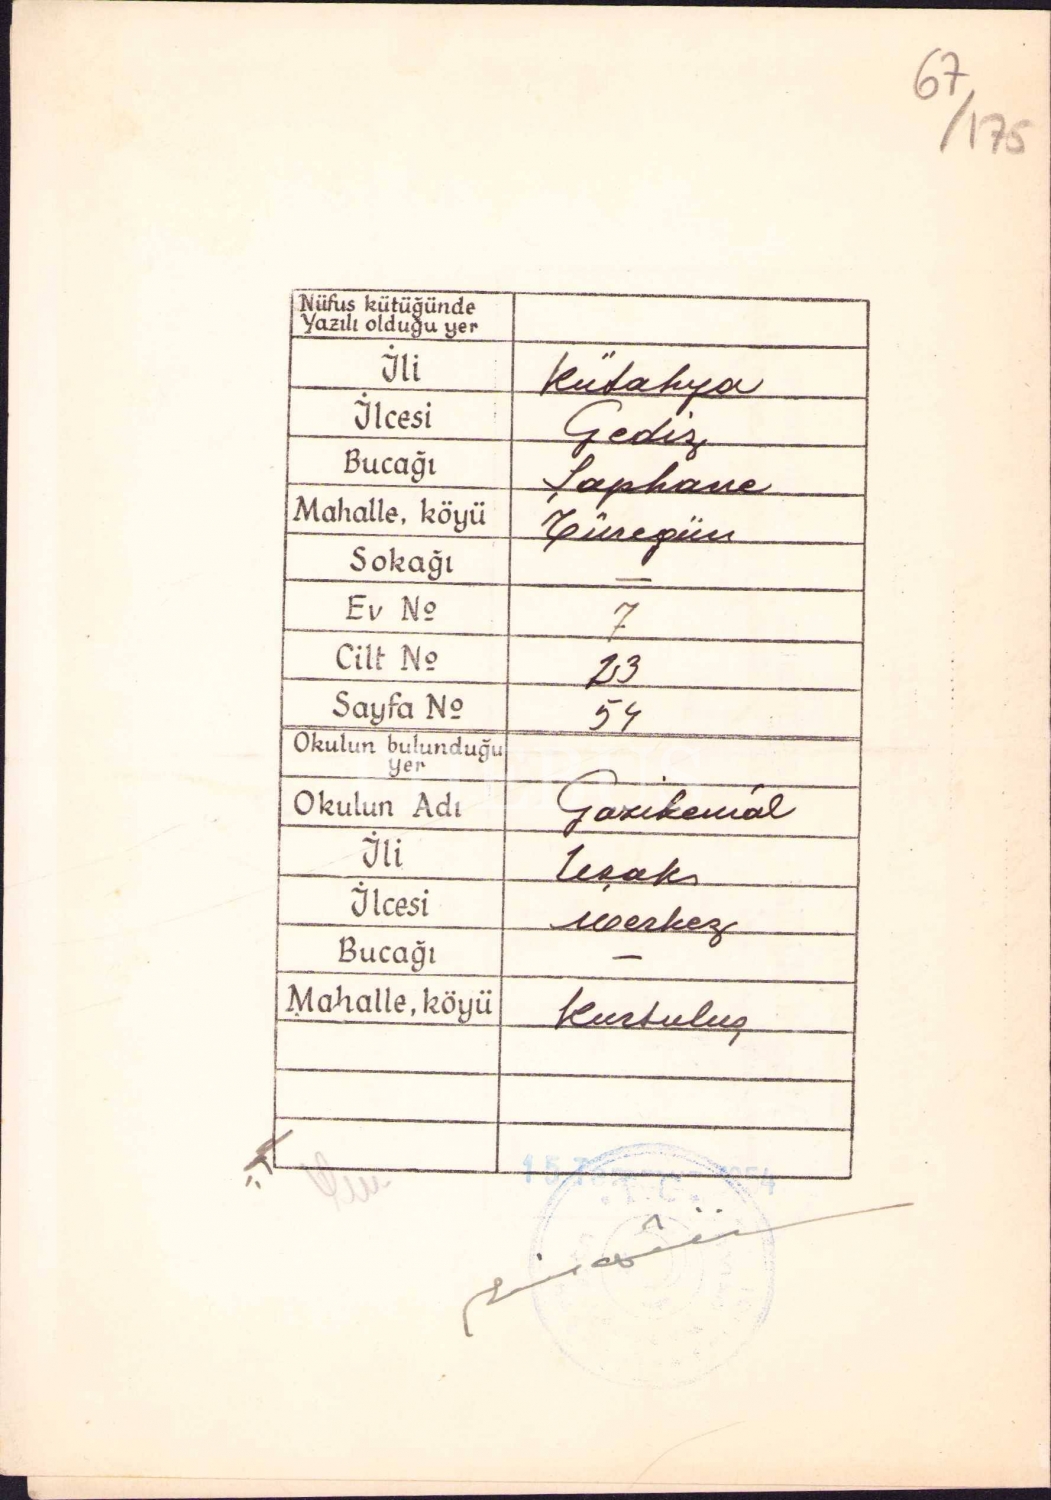 67
/175
Nüfus kütüğünde
Yazılı olduğu yer
İli Kütahya
İlcesi Gediz
Bucağı Şaphane
Mahalle, köyü
Sokağı —
Ev № 7
Cilt № 23
Sayfa № 54
Okulun bulunduğu
yer
Okulun Adı Gazikemâl
İli Uşak
İlcesi Merkez
Bucağı —
Mahalle, köyü Kurtuluş
15 1954
T.C.